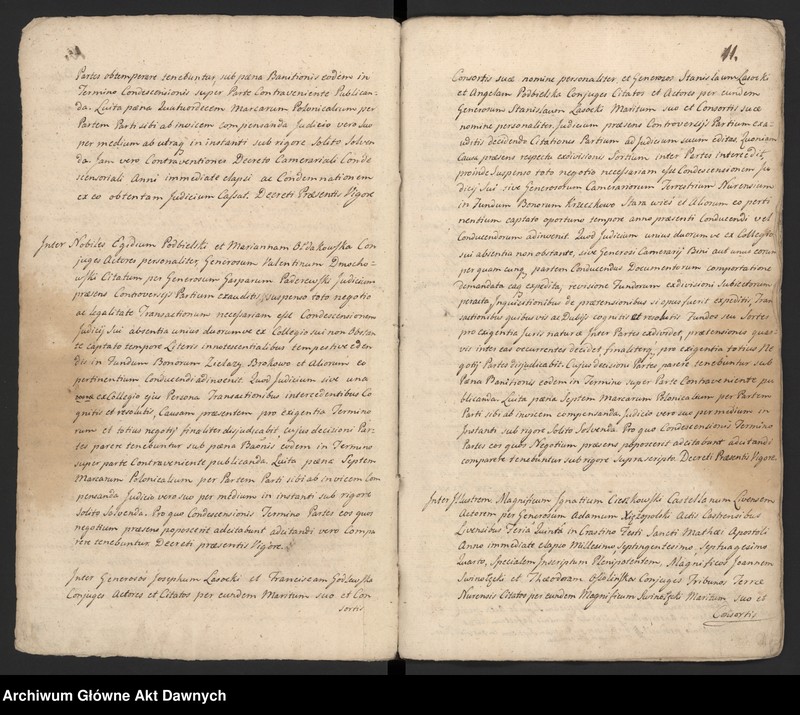 Partes obtemperare tenebuntur, sub pæna Banitionis eodem in
Termino Condescensionis super Parte Contraveniente Publican-
da. Luita pæna Quatuordecem Marcarum Polonicalium per
Partem Parti sibi ab invicem compensanda Judicio vero suo
per medium ab utraq in instanti sub rigore Solito Solven
da. Jam vero Contraventiones Decreto Camerariali Conde
scensoriali Anni immediate elapsi ac Condemnationem
ex eo obtentam Judicium Cassat. Decreti Præsentis Vigore
Inter Nobiles Egidium Podbielski et Mariannam Con
juges Actores personaliter, Generosum Valentinum Dmocho-
wski Citatum per Generosum Gasparum Judicium
præsens Controversijs Partium exauditis, suspenso toto negotio
ac legalitate Transactionum necessariam esse Condescensionem
Judicij Sui absentia unius duorumve ex Collegio sui non Obstan
te captato tempore Literis innotescentialibus tempestive eden
dis in Fundum Bonorum Zielazy Brokowo et Aliorum eo
pertinentium Conducendi adinvenit. Quod Judicium sive una
ex Collegio ejus Persona Transactionibus intercedentibus Co
gnitis et revolutis, Causam præsentem pro exigentia Termino
rum et totius negotij finaliter disjudicabit, cujus decisioni Par-
tes parere tenebuntur sub pæna Baonis eodem in Termino
super parte Contraveniente publicanda. Luita pæna Septem
Marcarum Polonicalium per Partem Parti sibi ab invicem Com
pensanda Judicio vero suo per medium in instanti sub rigore
Solito Solvenda. Pro quo Condescensionis Termino Partes eos quos
negotium præsens poposcerit adcitabunt adcitandi vero Compa
rere tenebuntur Decreti præsentis Vigore.
Inter Generosos Josephum Lasocki et Franciscam
Conjuges Actores et Citatos per eundem Maritum suo et Con
sortis
11.
Consortis suæ nomine personaliter et Generosos Stanislaum Lasocki
et Angelam Podbielska Conjuges Citatos et Actores per eundem
Generosum Stanislaum Lasocki Maritum suo et Consortis suæ
nomine personaliter. Judicium præsens Controversijs Partium exa-
uditis decidendo Citationes Partium ad Judicium suum editas. Quoniam
Causa præsens respectu exdivisionis Sortium inter Partes intercedit,
proinde Suspenso toto negotio necessariam esse Condescensionem Ju
dicij sui sive Generosorum Camerariorum Terrestrium Nurensium
in Fundum Bonorum Krzeczkowo Stara wies et Aliorum eo perti
nentium captato oportuno tempore anno præsenti Conducendi vel
Conducendorum adinvenit. Quod Judicium unius duorumve ex Collegio
sui absentia non obstante, sive Generosi Camerarij Bini aut unus eorum
per quamcunq partem Conducendus Documentorum comportatione
demandata eaq expedita, revisione Fundorum exdivisioni Subiectorum
peracta Inquisitionibus de prætensionibus si opus fuerit expeditis, Tran
sactionibus quibusvis ac Dubijs cognitis et revolutis Fundos seu Sortes
pro exigentia Juris naturæ Inter Partes exdividet, prætensiones quas-
vis inter eas occurrentes decidet finaliterq pro exigentia totius Ne
gotij Partes disjudicabit. Cujus decisioni Partes parere tenebuntur sub
Pæna Banitionis eodem in Termino super Parte Contraveniente pu
blicanda. Luita pæna Septem Marcarum Polonicalium per Partem
Parti sibi ab invicem compensanda, Judicio vero suo per medium in
Instanti sub rigore Solito Solvenda. Pro quo Condescensionis Termino
Partes eos quos Negotium præsens poposcerit adcitabunt adcitandi
comparere tenebuntur sub rigore Suprascripto. Decreti Præsentis Vigore.
Inter Illustrem Magnificum Ignatium Cieszkowski Castellanum Livensem
Actorem per Generosum Adamum Actis Castrensibus
Livensibus Feria Quinta in Crastino Festi Sancti Mathæi Apostoli
Anno immediate elapso Millesimo Septingentesimo Septuagesimo
Quarto, Specialem Inscriptum Plenipotentem, Magnificos Joannem
et Theodoram Ossolinska Conjuges Tribunos Terræ
Nurensis Citatos per eundem Magnificum Maritum suo et
Consortis
Archiwum Główne Akt Dawnych